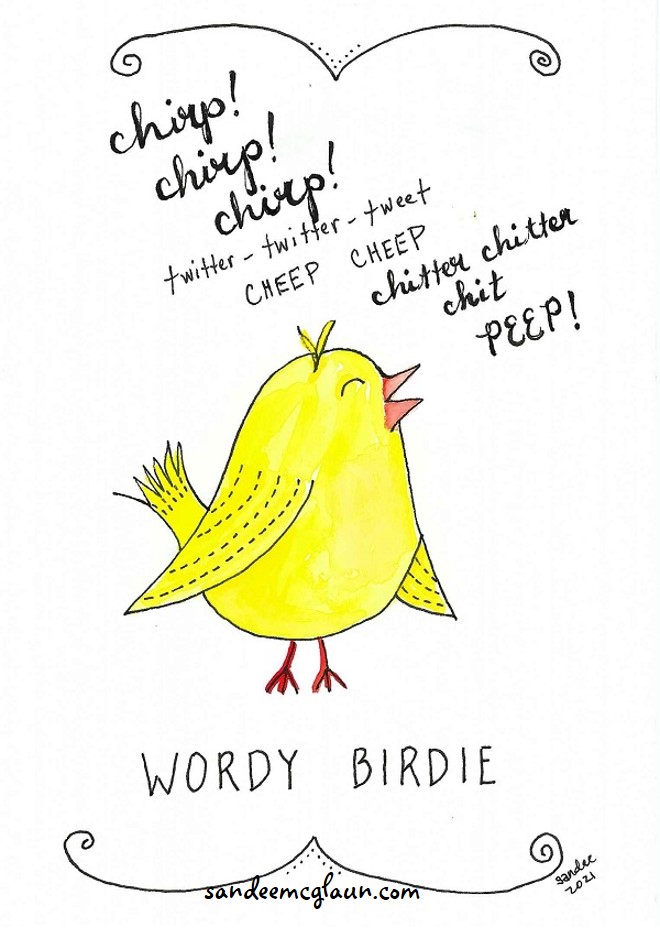 chirp!
chirp!
chirp!
twitter - twitter - tweet
CHEEP CHEEP
chitter chitter
chit
PEEP!
WORDY BIRDIE
sandee
2021
sandeemcglaun.com